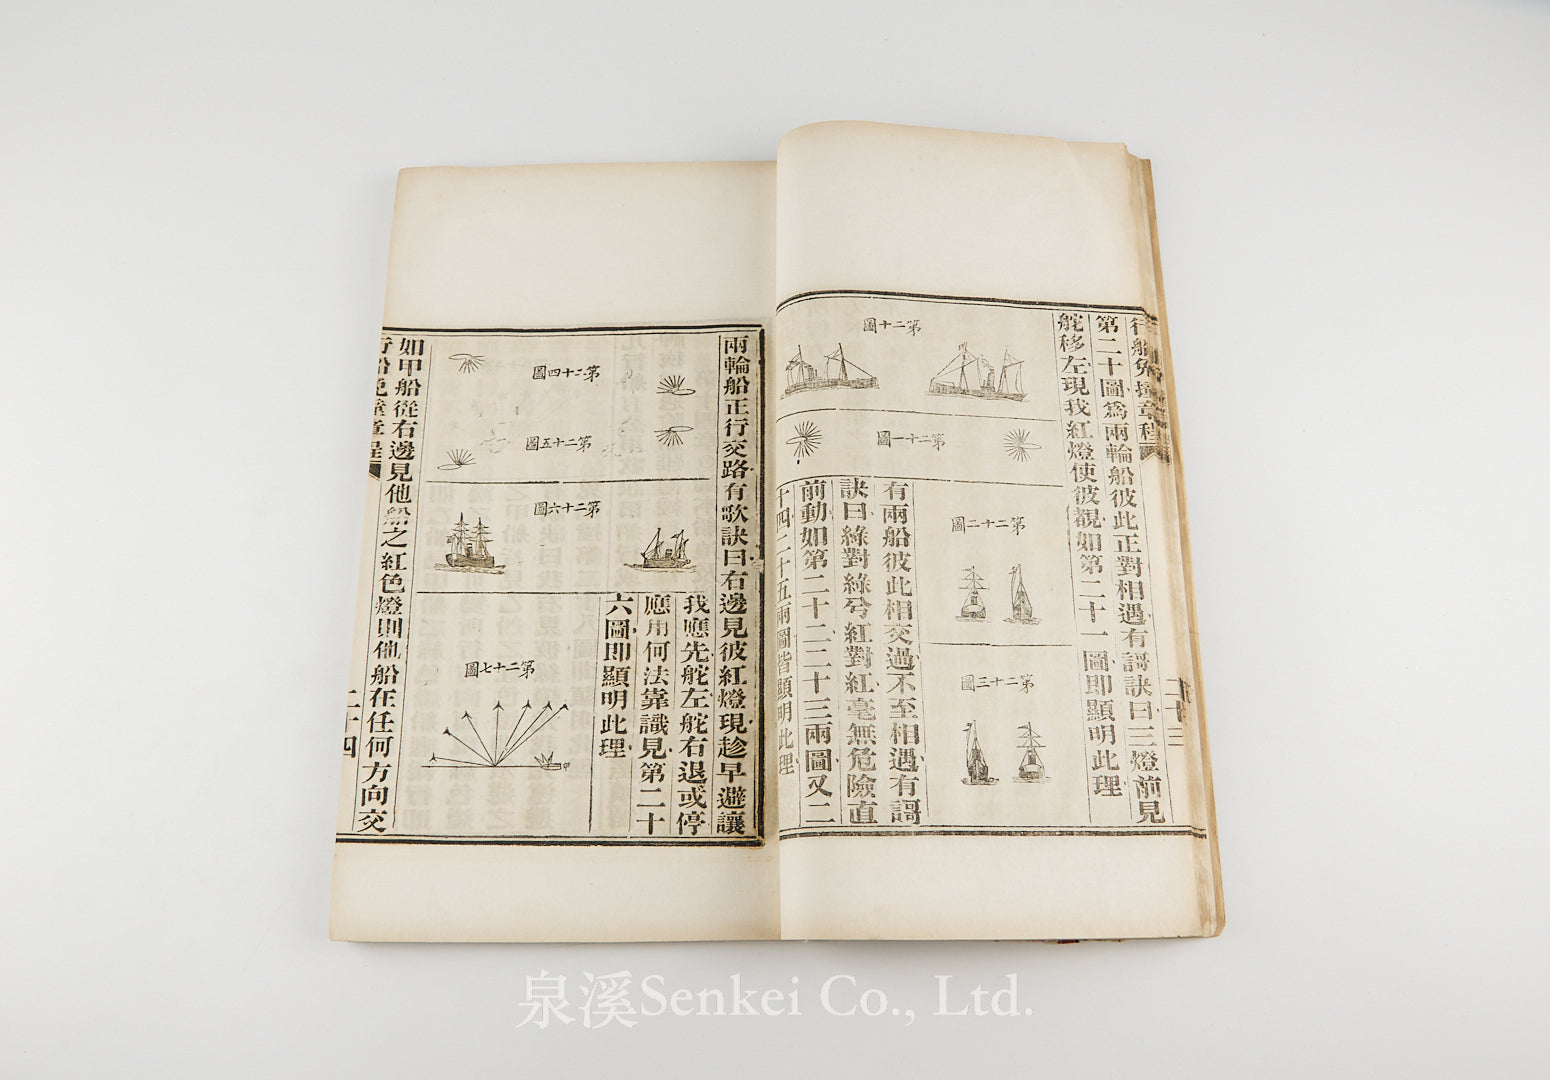 行船免撞章程
二十三
第二十圖爲兩輪船彼此正對相遇有謌訣曰三燈前見
舵移左現我紅燈使彼覩如第二十一圖即顯明此理
圖十二第
圖一十二第
圖二十二第
圖三十二第
有兩船彼此相交過不至相遇有謌
訣曰綠對綠兮紅對紅毫無危險直
前動如第二十二二十三兩圖又二
十四二十五兩圖皆顯明此理
兩輪船正行交路有歌訣曰右邊見彼紅燈現趁早避讓
我應先舵左舵右退或停
應用何法靠識見第二十
六圖即顯明此理
圖四十二第
圖五十二第
圖六十二第
圖七十二第
如甲船從右邊見他船之紅色燈則他船在任何方向交
行船免撞章程
二十四
泉溪Senkei Co., Ltd.